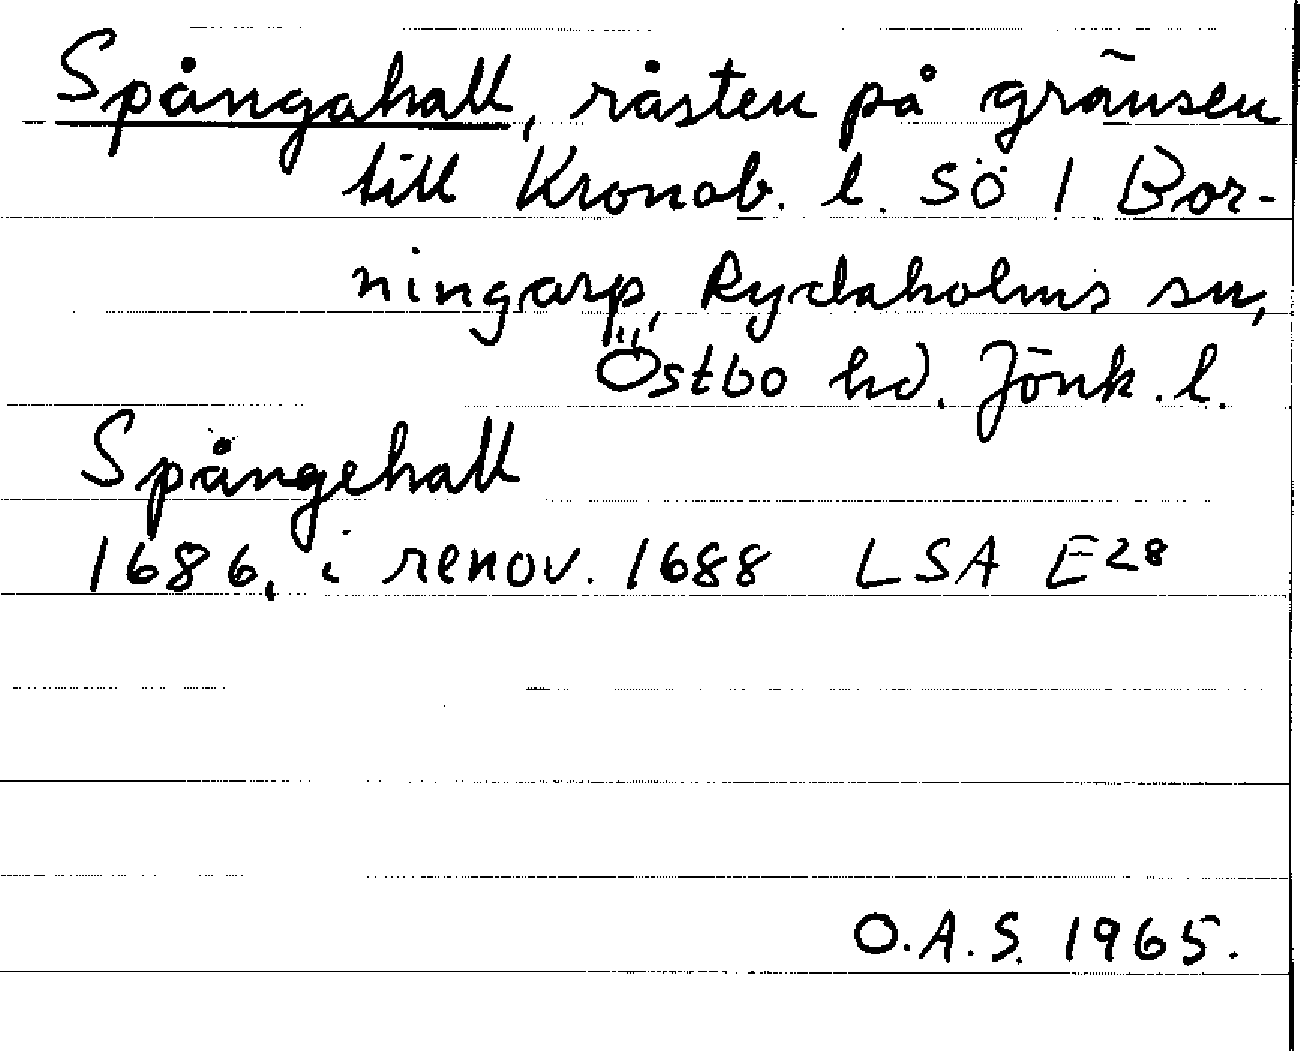 Spångahall, råsten på gränsen
till Kronob. l. SÖ / Bor-
ningarp, Rydaholms sn,
Östbo hd. Jönk. l.
Spångehall
1686, i renov. 1688 LSA E28
O.A.S. 1965.